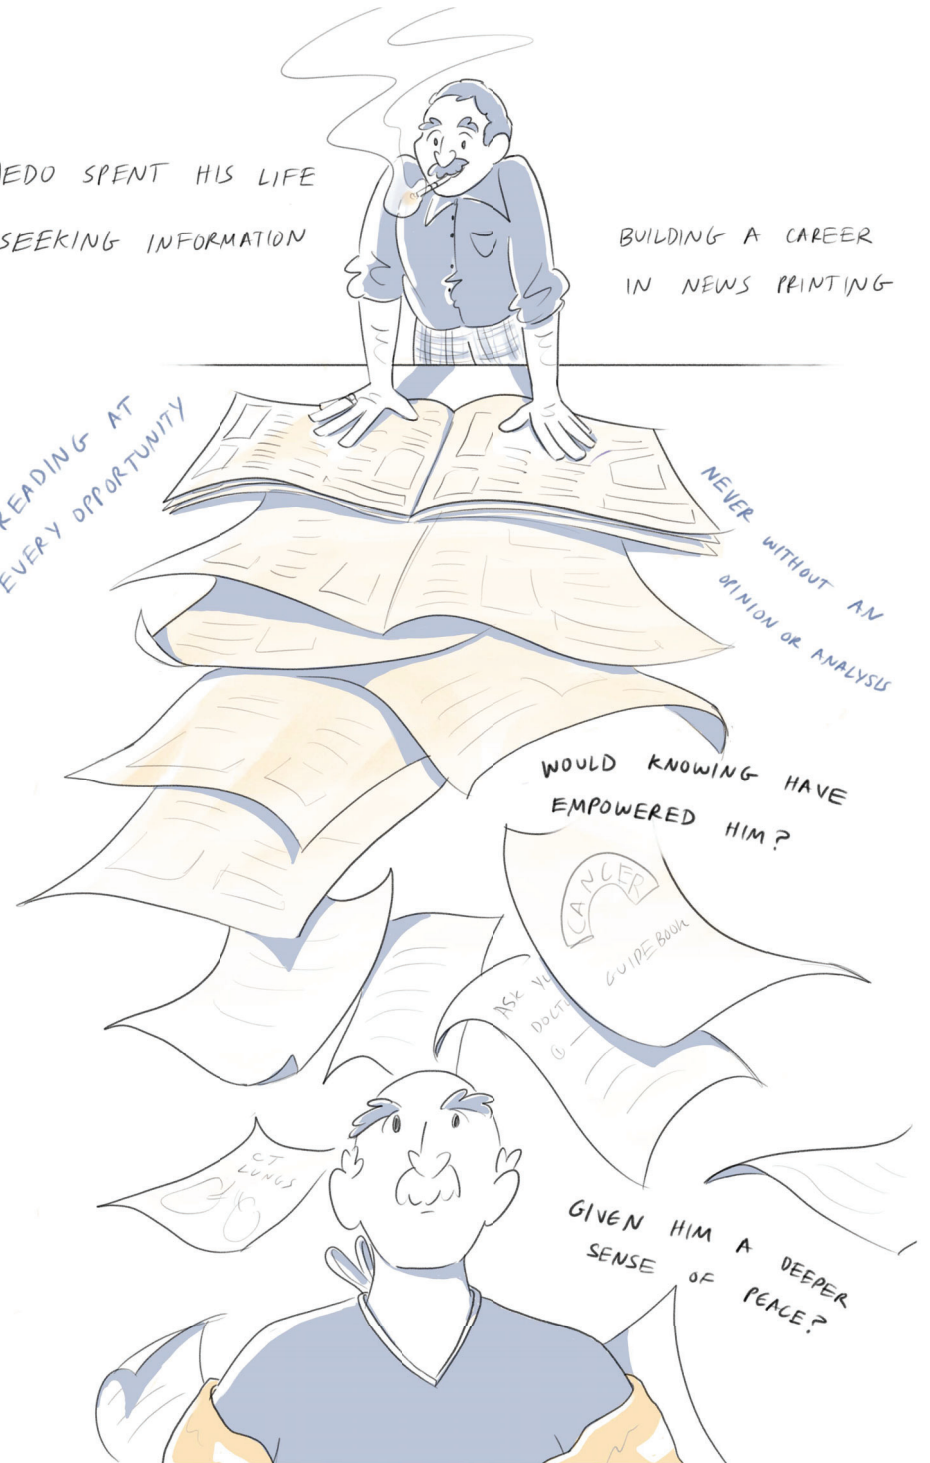 EDO SPENT HIS LIFE
SEEKING INFORMATION
BUILDING A CAREER
IN NEWS PRINTING
READING AT
EVERY OPPORTUNITY
NEVER WITHOUT AN
OPINION OR ANALYSIS
WOULD KNOWING HAVE
EMPOWERED HIM?
CANCER
GUIDEBOOK
ASK
①
CT
LUNGS
GIVEN HIM A DEEPER
SENSE OF PEACE?